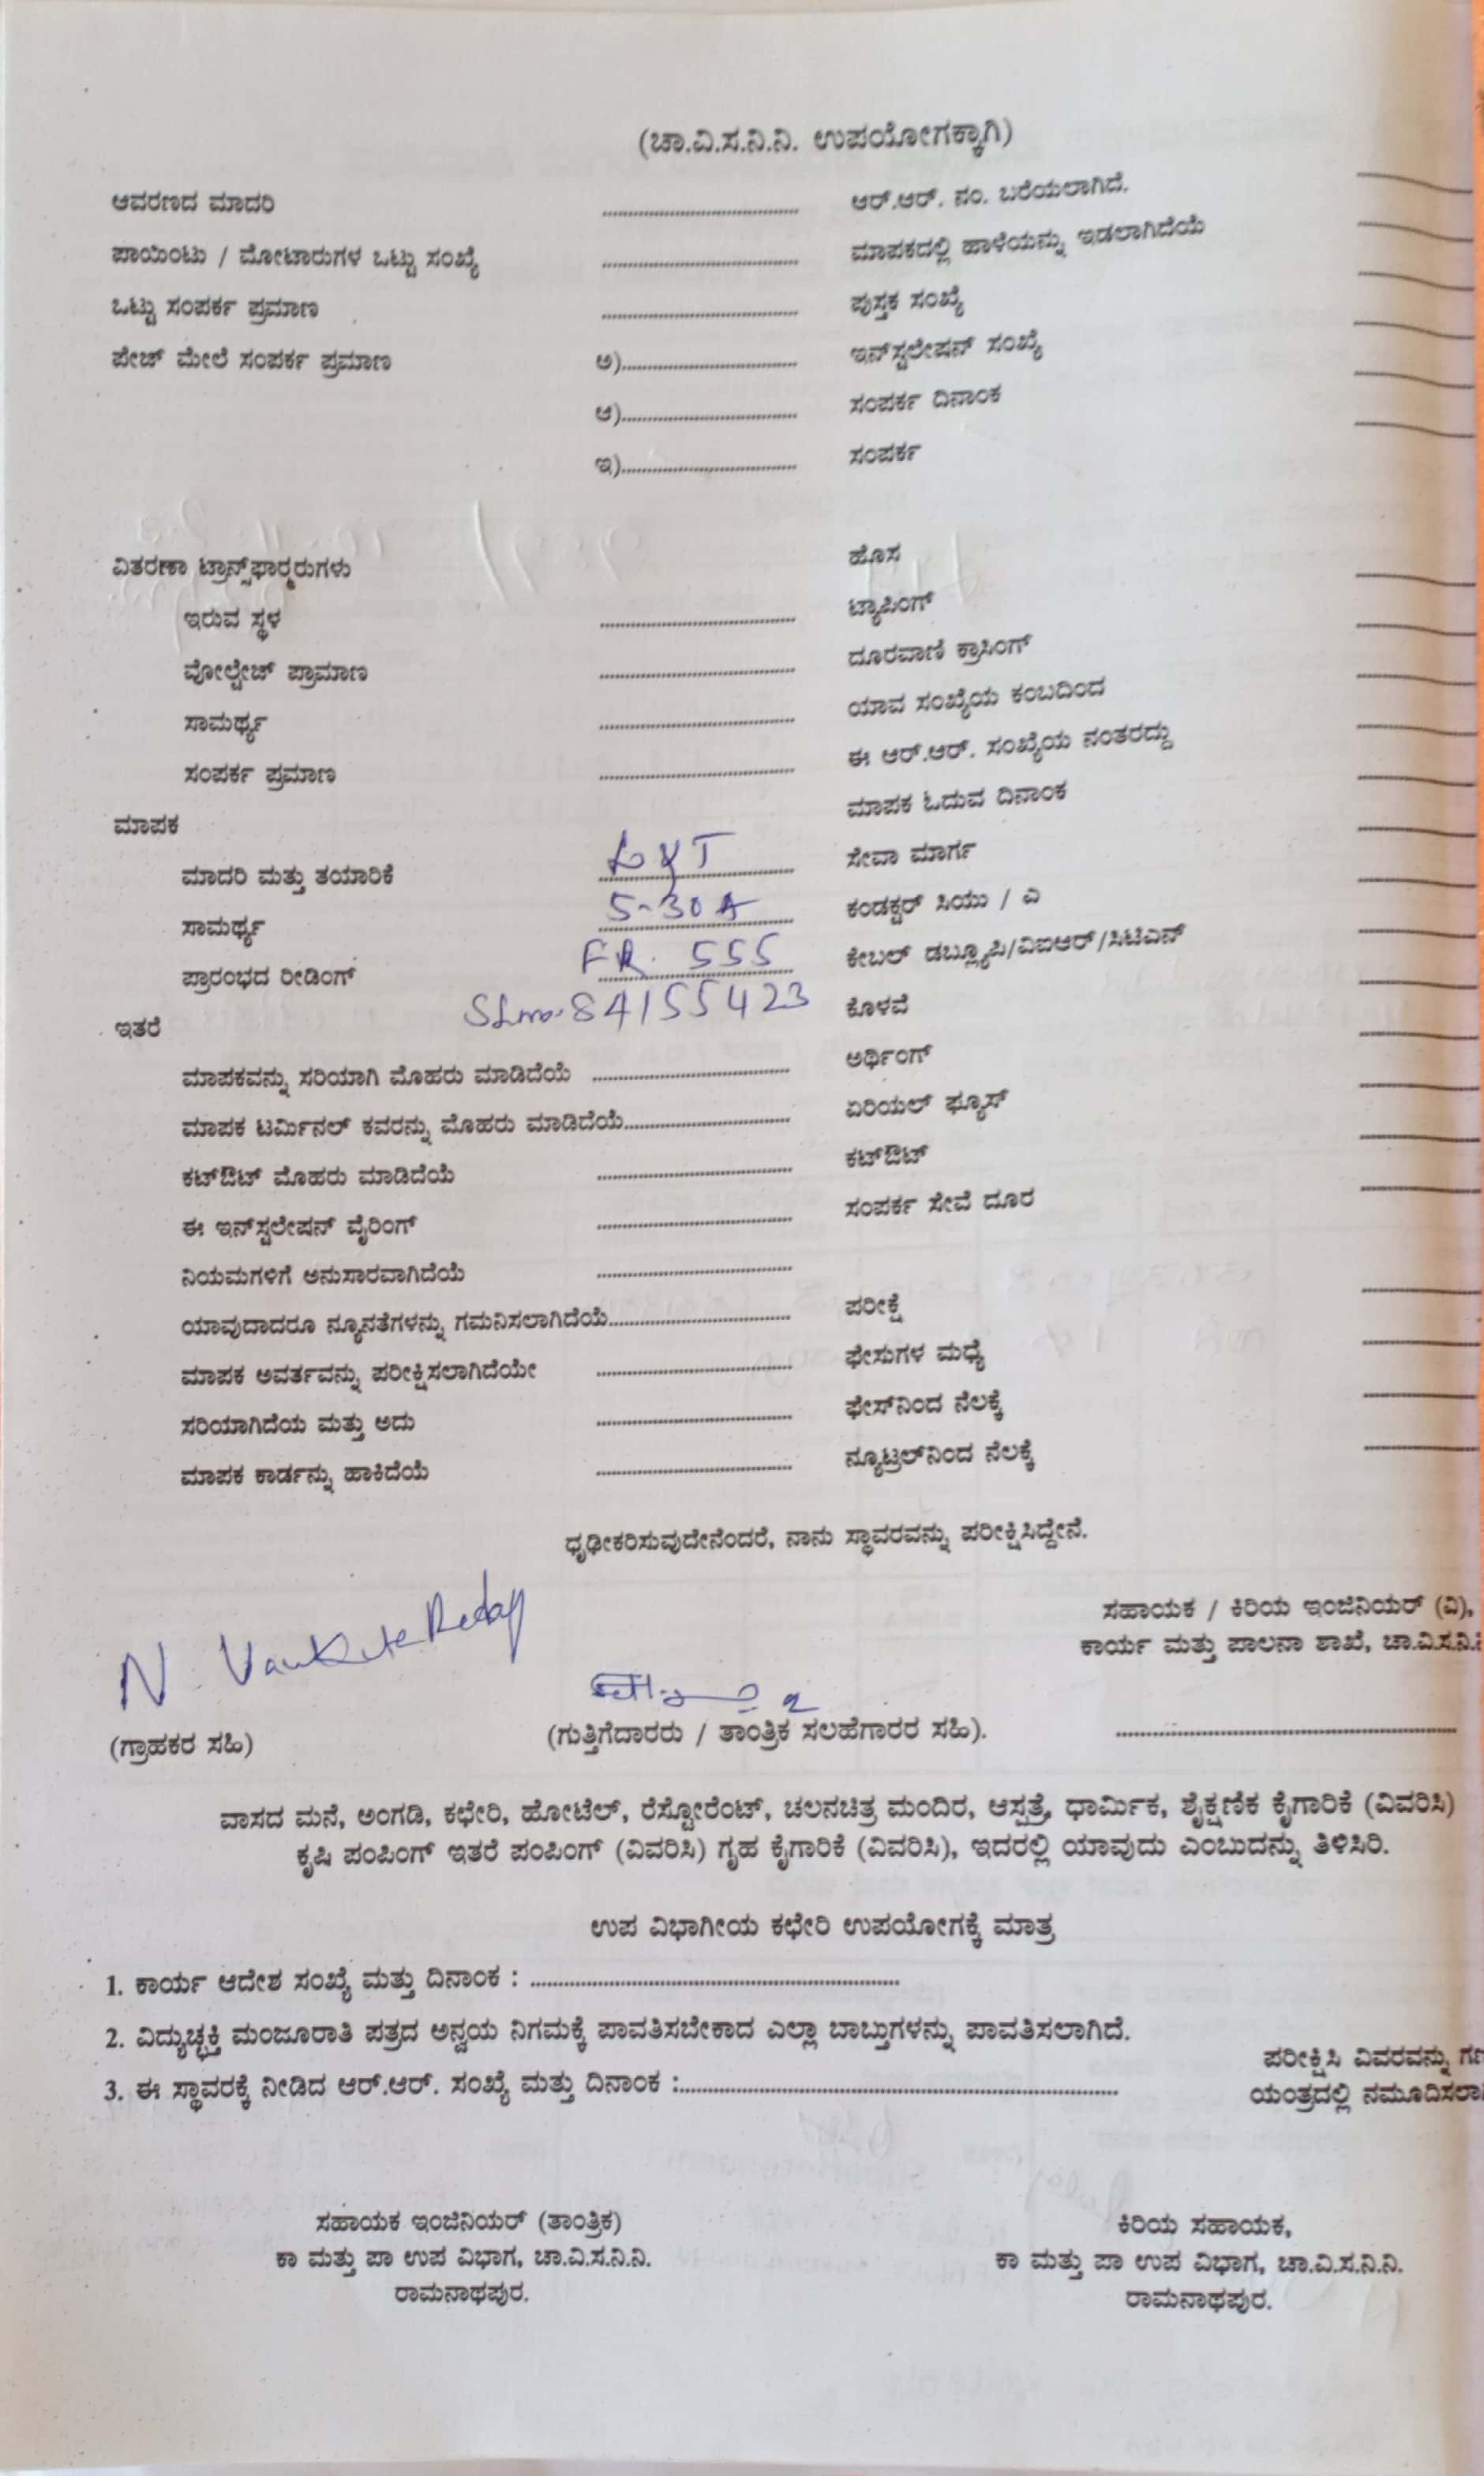 (ಚಾ.ವಿ.ಸ.ನಿ.ನಿ. ಉಪಯೋಗಕ್ಕಾಗಿ)
ಆವರಣದ ಮಾದರಿ ........................ ಆರ್.ಆರ್. ನಂ. ಬರೆಯಲಾಗಿದೆ.
ಪಾಯಿಂಟು / ಮೋಟಾರುಗಳ ಒಟ್ಟು ಸಂಖ್ಯೆ ........................ ಮಾಪಕದಲ್ಲಿ ಹಾಳೆಯನ್ನು ಇಡಲಾಗಿದೆಯೆ
ಒಟ್ಟು ಸಂಪರ್ಕ ಪ್ರಮಾಣ ........................ ಪುಸ್ತಕ ಸಂಖ್ಯೆ
ಪೇಚ್ ಮೇಲೆ ಸಂಪರ್ಕ ಪ್ರಮಾಣ ಅ)........................ ಇನ್‌ಸ್ಟಲೇಷನ್ ಸಂಖ್ಯೆ
ಆ)........................ ಸಂಪರ್ಕ ದಿನಾಂಕ
ಇ)........................ ಸಂಪರ್ಕ
ವಿತರಣಾ ಟ್ರಾನ್ಸ್‌ಫಾರ್ಮರುಗಳು ಹೊಸ
ಇರುವ ಸ್ಥಳ ........................ ಟ್ಯಾಪಿಂಗ್
ವೋಲ್ಟೇಜ್ ಪ್ರಾಮಾಣ ........................ ದೂರವಾಣಿ ಕ್ರಾಸಿಂಗ್
ಸಾಮರ್ಥ್ಯ ........................ ಯಾವ ಸಂಖ್ಯೆಯ ಕಂಬದಿಂದ
ಸಂಪರ್ಕ ಪ್ರಮಾಣ ........................ ಈ ಆರ್.ಆರ್. ಸಂಖ್ಯೆಯ ನಂತರದ್ದು
ಮಾಪಕ ಮಾಪಕ ಓದುವ ದಿನಾಂಕ
ಮಾದರಿ ಮತ್ತು ತಯಾರಿಕೆ L&T ಸೇವಾ ಮಾರ್ಗ
ಸಾಮರ್ಥ್ಯ 5-30A ಕಂಡಕ್ಟರ್ ಸಿಯು / ಎ
ಪ್ರಾರಂಭದ ರೀಡಿಂಗ್ FR. 555 ಕೇಬಲ್ ಡಬ್ಲ್ಯೂಪಿ/ವಿಐಆರ್/ಸಿಟಿಎನ್
ಇತರೆ SLno. 84155423 ಕೊಳವೆ
ಮಾಪಕವನ್ನು ಸರಿಯಾಗಿ ಮೊಹರು ಮಾಡಿದೆಯೆ ........................ ಅರ್ಥಿಂಗ್
ಮಾಪಕ ಟರ್ಮಿನಲ್ ಕವರನ್ನು ಮೊಹರು ಮಾಡಿದೆಯೆ........................ ಏರಿಯಲ್ ಫ್ಯೂಸ್
ಕಟ್‌ಔಟ್ ಮೊಹರು ಮಾಡಿದೆಯೆ ........................ ಕಟ್‌ಔಟ್
ಈ ಇನ್‌ಸ್ಟಲೇಷನ್ ವೈರಿಂಗ್ ........................ ಸಂಪರ್ಕ ಸೇವೆ ದೂರ
ನಿಯಮಗಳಿಗೆ ಅನುಸಾರವಾಗಿದೆಯೆ ........................
ಯಾವುದಾದರೂ ನ್ಯೂನತೆಗಳನ್ನು ಗಮನಿಸಲಾಗಿದೆಯೆ........................ ಪರೀಕ್ಷೆ
ಮಾಪಕ ಅವರ್ತವನ್ನು ಪರೀಕ್ಷಿಸಲಾಗಿದೆಯೇ ........................ ಫೇಸುಗಳ ಮಧ್ಯೆ
ಸರಿಯಾಗಿದೆಯ ಮತ್ತು ಅದು ........................ ಫೇಸ್‌ನಿಂದ ನೆಲಕ್ಕೆ
ಮಾಪಕ ಕಾರ್ಡನ್ನು ಹಾಕಿದೆಯೆ ........................ ನ್ಯೂಟ್ರಲ್‌ನಿಂದ ನೆಲಕ್ಕೆ
ಧೃಢೀಕರಿಸುವುದೇನೆಂದರೆ, ನಾನು ಸ್ಥಾವರವನ್ನು ಪರೀಕ್ಷಿಸಿದ್ದೇನೆ.
ಸಹಾಯಕ / ಕಿರಿಯ ಇಂಜಿನಿಯರ್ (ವಿ),
ಕಾರ್ಯ ಮತ್ತು ಪಾಲನಾ ಶಾಖೆ, ಚಾ.ವಿ.ಸ.ನಿ.
N. VanKateReddy
(ಗ್ರಾಹಕರ ಸಹಿ) (ಗುತ್ತಿಗೆದಾರರು / ತಾಂತ್ರಿಕ ಸಲಹೆಗಾರರ ಸಹಿ). ........................
ವಾಸದ ಮನೆ, ಅಂಗಡಿ, ಕಛೇರಿ, ಹೋಟೆಲ್, ರೆಸ್ಟೋರೆಂಟ್, ಚಲನಚಿತ್ರ ಮಂದಿರ, ಆಸ್ಪತ್ರೆ, ಧಾರ್ಮಿಕ, ಶೈಕ್ಷಣಿಕ ಕೈಗಾರಿಕೆ (ವಿವರಿಸಿ)
ಕೃಷಿ ಪಂಪಿಂಗ್ ಇತರೆ ಪಂಪಿಂಗ್ (ವಿವರಿಸಿ) ಗೃಹ ಕೈಗಾರಿಕೆ (ವಿವರಿಸಿ), ಇದರಲ್ಲಿ ಯಾವುದು ಎಂಬುದನ್ನು ತಿಳಿಸಿರಿ.
ಉಪ ವಿಭಾಗೀಯ ಕಛೇರಿ ಉಪಯೋಗಕ್ಕೆ ಮಾತ್ರ
1. ಕಾರ್ಯ ಆದೇಶ ಸಂಖ್ಯೆ ಮತ್ತು ದಿನಾಂಕ : ........................
2. ವಿದ್ಯುಚ್ಛಕ್ತಿ ಮಂಜೂರಾತಿ ಪತ್ರದ ಅನ್ವಯ ನಿಗಮಕ್ಕೆ ಪಾವತಿಸಬೇಕಾದ ಎಲ್ಲಾ ಬಾಬ್ತುಗಳನ್ನು ಪಾವತಿಸಲಾಗಿದೆ.
ಪರೀಕ್ಷಿಸಿ ವಿವರವನ್ನು
3. ಈ ಸ್ಥಾವರಕ್ಕೆ ನೀಡಿದ ಆರ್.ಆರ್. ಸಂಖ್ಯೆ ಮತ್ತು ದಿನಾಂಕ :........................ ಯಂತ್ರದಲ್ಲಿ
ಸಹಾಯಕ ಇಂಜಿನಿಯರ್ (ತಾಂತ್ರಿಕ) ಕಿರಿಯ ಸಹಾಯಕ,
ಕಾ ಮತ್ತು ಪಾ ಉಪ ವಿಭಾಗ, ಚಾ.ವಿ.ಸ.ನಿ.ನಿ. ಕಾ ಮತ್ತು ಪಾ ಉಪ ವಿಭಾಗ, ಚಾ.ವಿ.ಸ.ನಿ.ನಿ.
ರಾಮನಾಥಪುರ. ರಾಮನಾಥಪುರ.